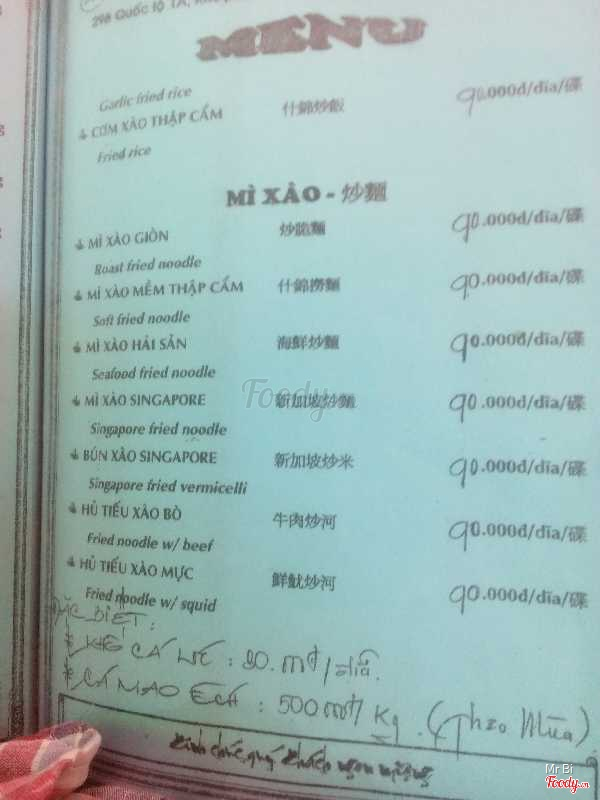 298 Quốc lộ 1A,
MENU
Garlic fried rice
CƠM XÀO THẬP CẨM 什錦炒飯 90.000đ/dĩa/碟
Fried rice
MÌ XÀO - 炒麵
MÌ XÀO GIÒN 炒脆麵 90.000đ/dĩa/碟
Roast fried noodle
MÌ XÀO MỀM THẬP CẨM 什錦撈麵 90.000đ/dĩa/碟
Soft fried noodle
MÌ XÀO HẢI SẢN 海鮮炒麵 90.000đ/dĩa/碟
Seafood fried noodle
MÌ XÀO SINGAPORE 新加坡炒麵 90.000đ/dĩa/碟
Singapore fried noodle
BÚN XÀO SINGAPORE 新加坡炒米 90.000đ/dĩa/碟
Singapore fried vermicelli
HỦ TIẾU XÀO BÒ 牛肉炒河 90.000đ/dĩa/碟
Fried noodle w/ beef
HỦ TIẾU XÀO MỰC 鮮魷炒河 90.000đ/dĩa/碟
Fried noodle w/ squid
ĐẶC BIỆT:
* KHÔ CÁ : 80.mđ/dĩa.
* CÁ MAO ẾCH : 500mđ/Kg. (Theo Mùa)
Kính chúc quý khách ngon miệng
Foody
Mr Bi
Foody.vn